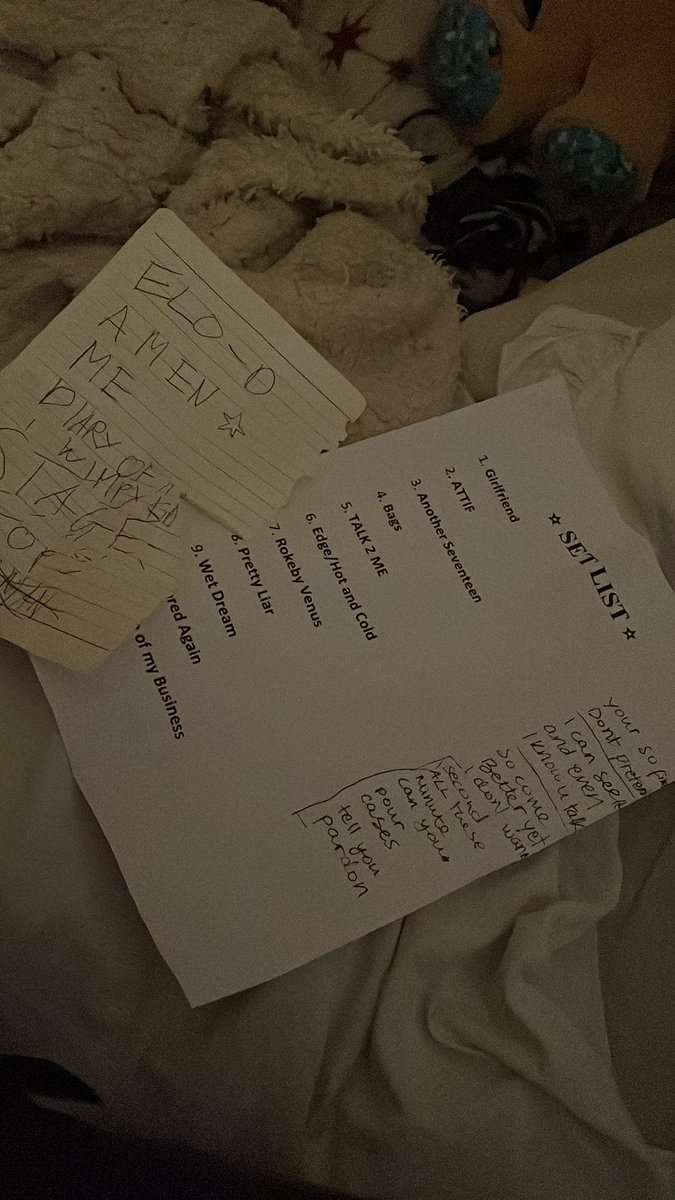 ELO-D
AMEN ☆
ME
DIARY OF A
WIMPY KID
STAGE
☆ SET LIST ☆
1. Girlfriend
2. ATTIF
3. Another Seventeen
4. Bags
5. TALK 2 ME
6. Edge/Hot and Cold
7. Rokeby Venus
8. Pretty Liar
9. Wet Dream
Again
of my Business
your so
Dont
I can see
and even
I know u talk
So come
Better yet
I dont
second
ALL these
Minute
can you
pour
cases
tell you
pardon